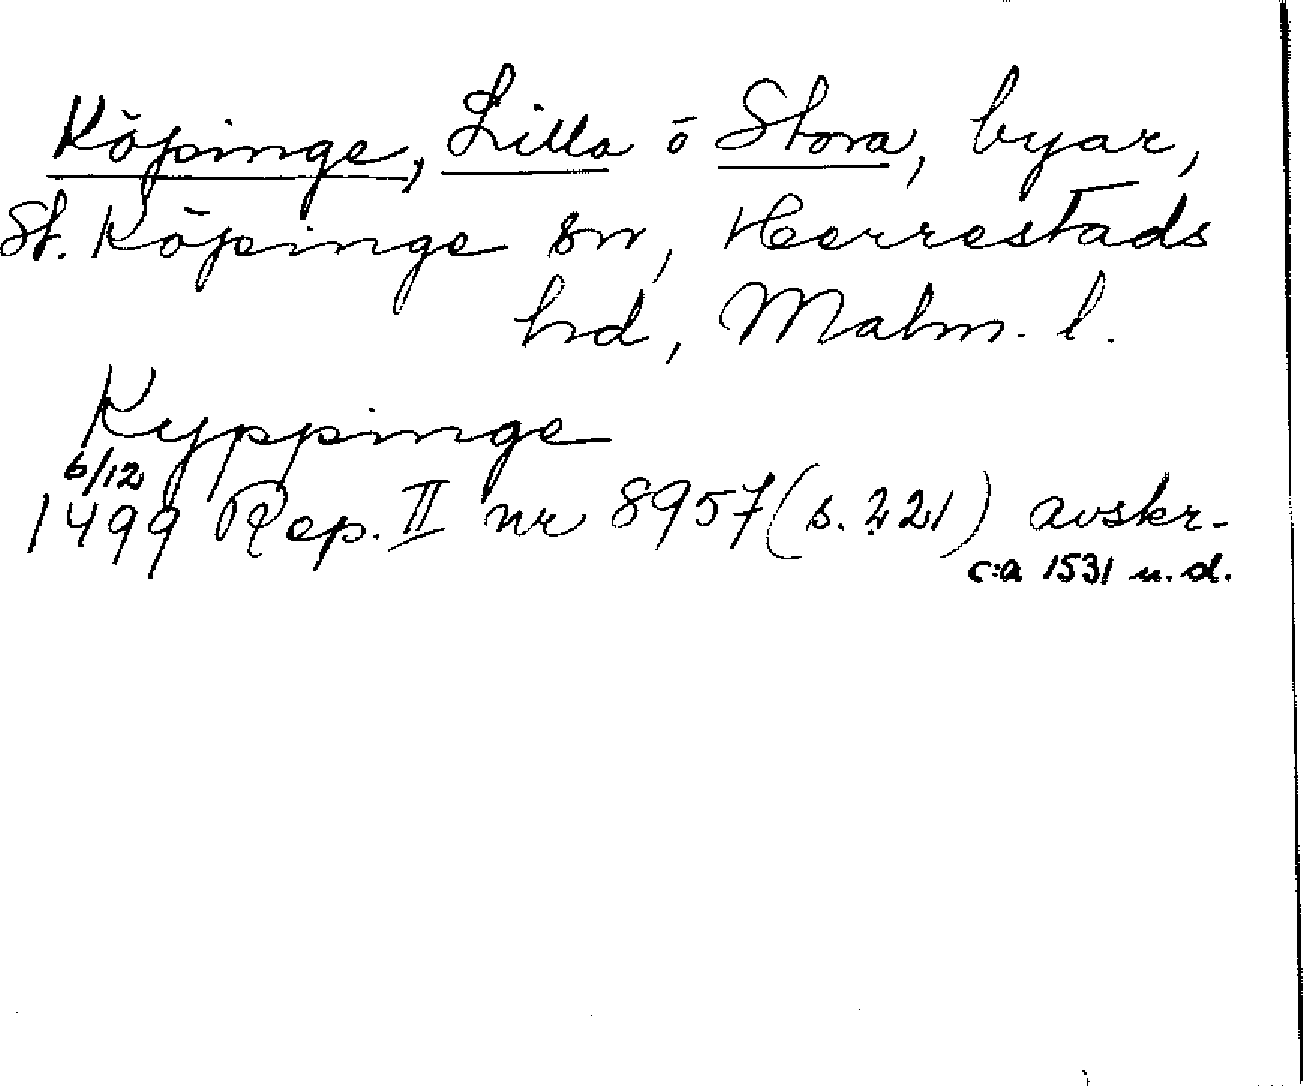 Köpinge, Lilla o Stora, byar,
St. Köpinge sn, Herrestads
hd, Malm. l.
Kyppinge
6/12
1499 Rep. II nr 8957 (s. 221) avskr.
c:a 1531 u. d.